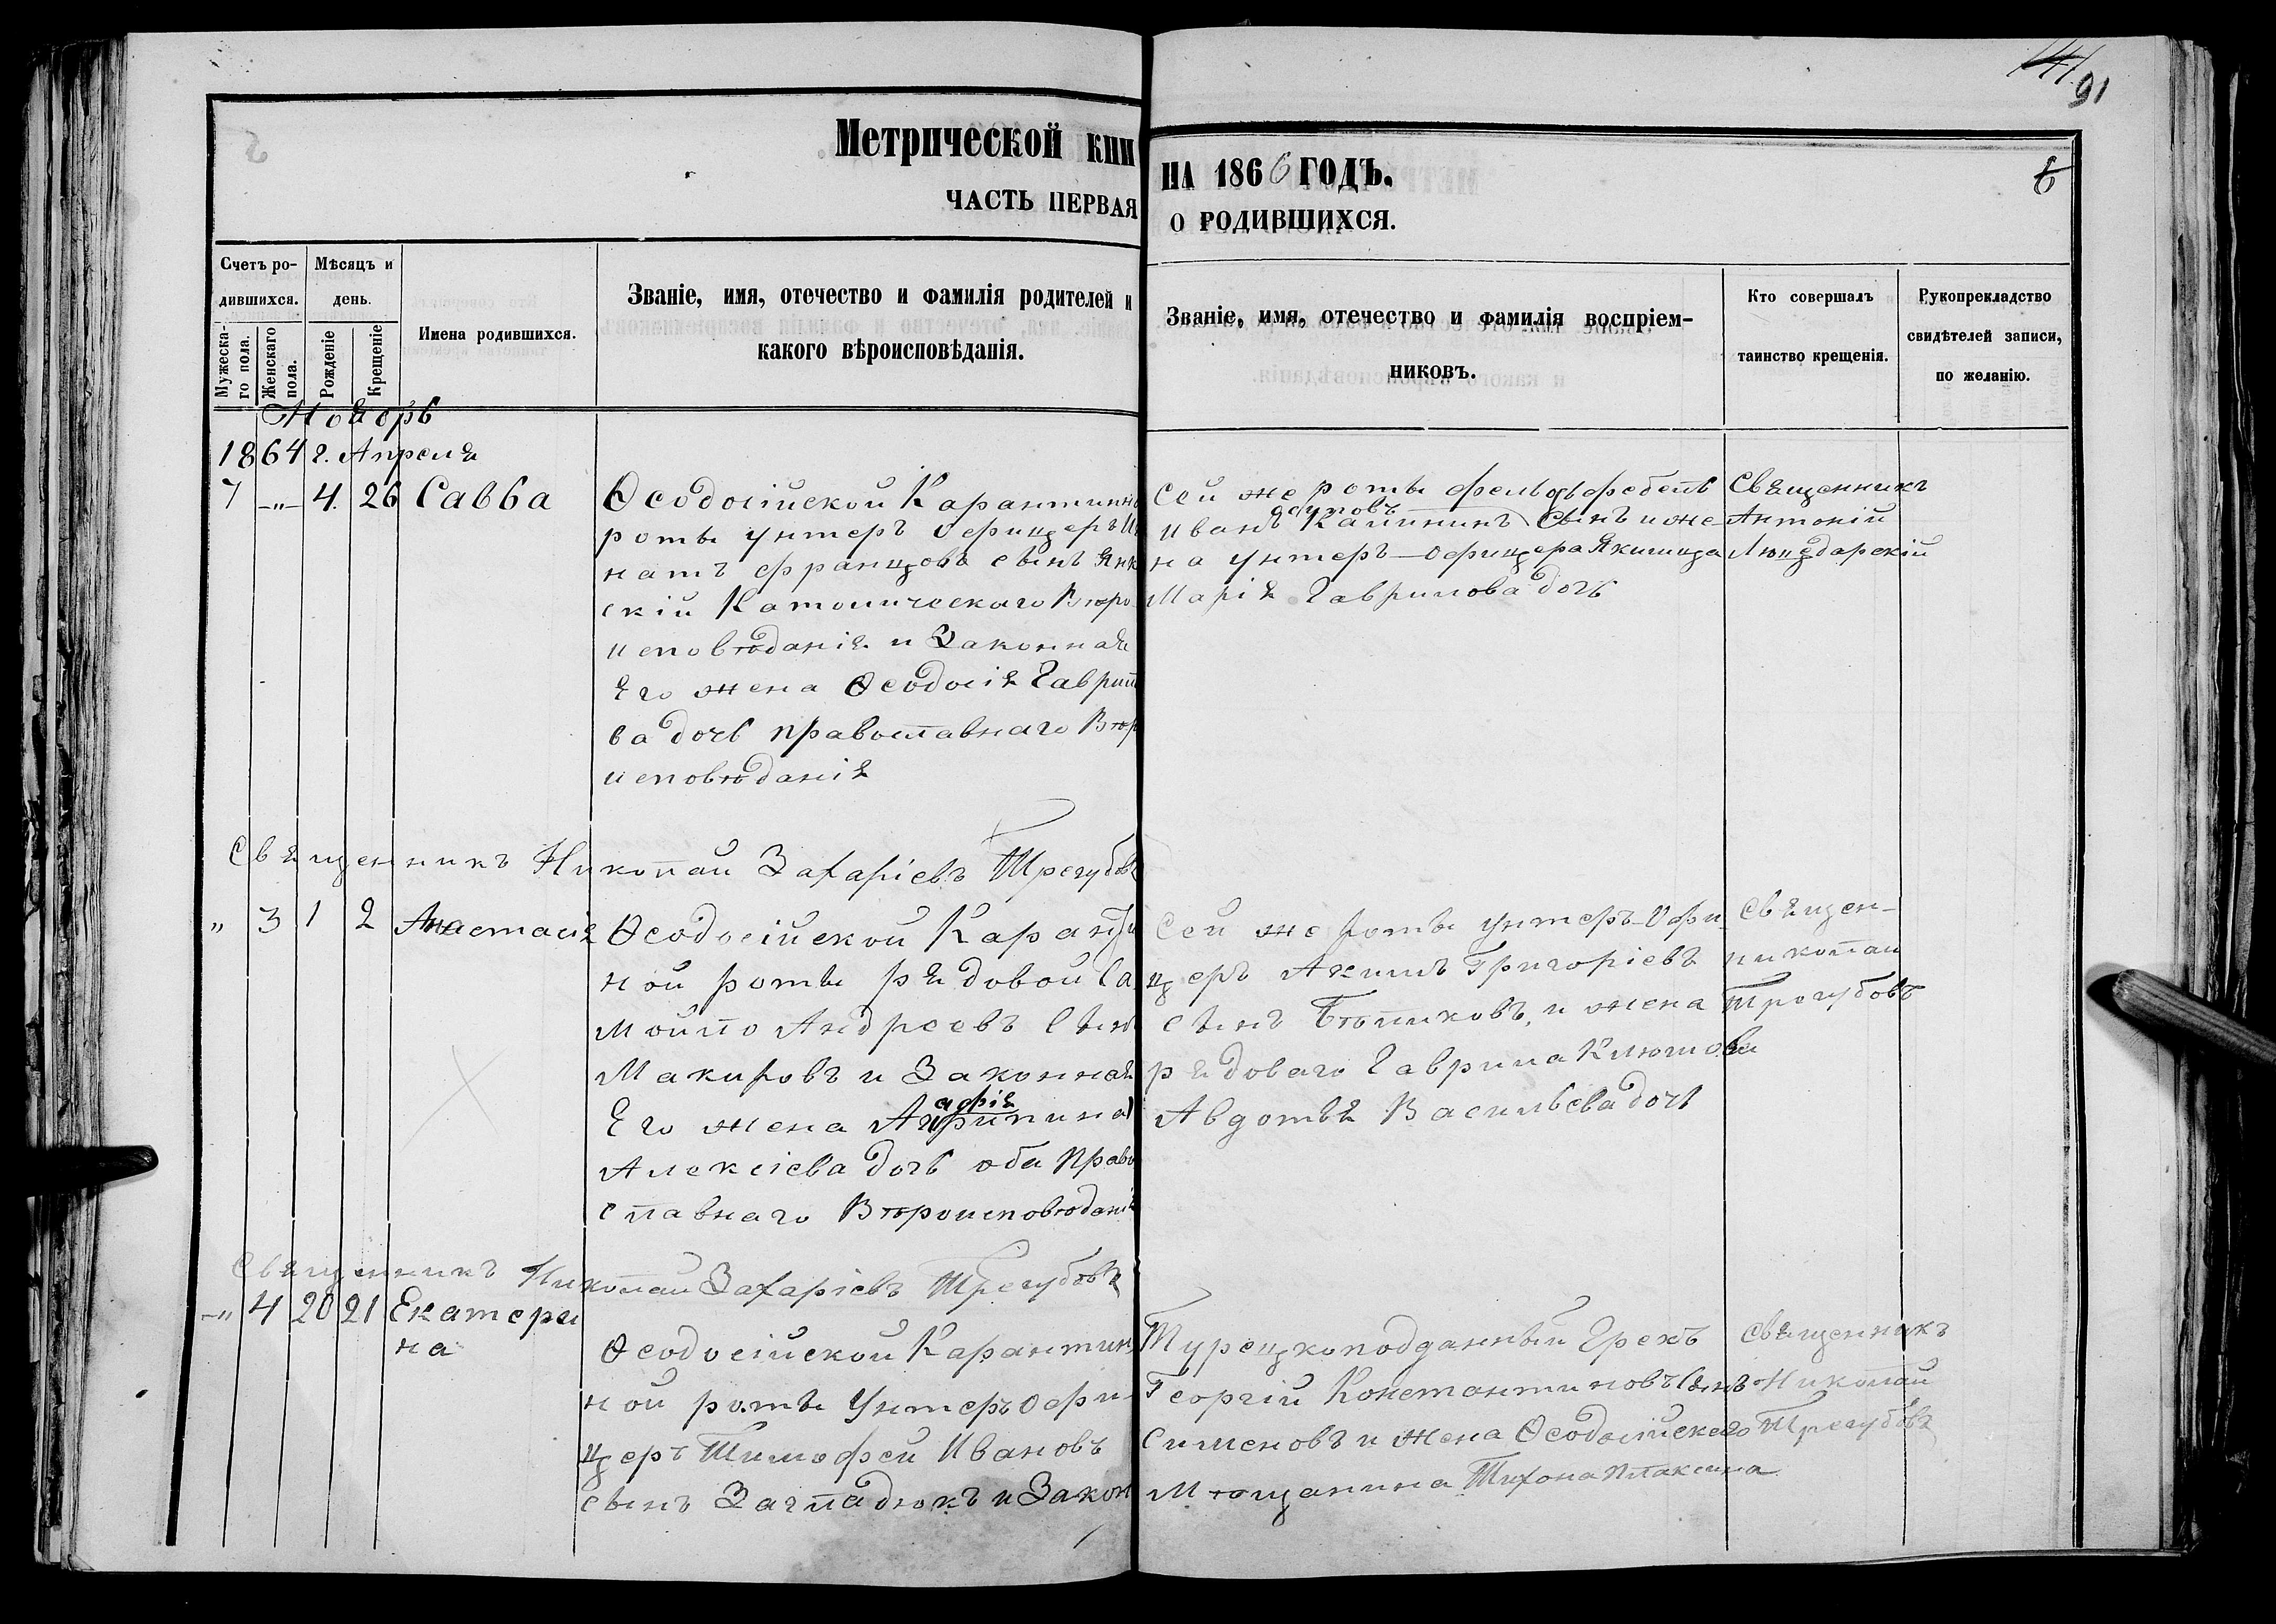 141
91
Метрической кни
НА 1866 ГОДЪ.
6
ЧАСТЬ ПЕРВАЯ
О РОДИВШИХСЯ.
Счетъ ро-
дившихся.
Мужеска-
го пола.
Женскаго
пола.
Мѣсяцъ и
день.
Рожденіе
Крещеніе
Имена родившихся.
Званіе, имя, отечество и фамилія родителей и
какого вѣроисповѣданія.
Званіе, имя, отечество и фамилія воспріем-
никовъ.
Кто совершалъ
таинство крещенія.
Рукоприкладство
свидѣтелей записи,
по желанію.
Ноябрь
1864 г. Апреля
7 -"- 4. 26 Савва
Ѳеодосійской Карантинно
роты унтеръ Офицеръ Иг
натъ францовъ сынъ Янк
скій Католическаго Вѣро
исповѣданія и Законная
Его жена Ѳеодосія Гаврил
ва дочь православнаго Вѣр
исповѣданія
Сей же роты фельдьфебель
осиповъ
Иванъ Калининъ Сынъ и же-
на унтеръ-офицера Якимица
Марія Гаврилова дочь
Священникъ
Антоній
Священникъ Николай Захаріевъ Трегубовъ
" 3 1 2 Анастасія
Ѳеодосійской Каранти
ной роты рядовой Са
мойло Андреевъ Сынъ
Макировъ и Законная
афія
Его жена Агрипина
Алексіева дочь оба Право
славнаго Вѣроисповѣданія
Сей же роты унтеръ-Офи
церъ Акимъ Григоріевъ
сынъ Бѣликовъ, и жена
рядоваго Гаврила Клюшова
Авдотья Васильева дочь
Священ-
николай
Трегубовъ
Священникъ Николай Захаріевъ Трегубовъ
-" 4 20 21 Екатери
на
Ѳеодосійской Карантин
ной роты Унтеръ Офи-
церъ Тимофей Ивановъ
сынъ Загладюкъ и Закон
Турецкоподданный Грекъ
Георгій Константиновъ Сынъ
Сименовъ и жена Ѳеодосійскаго
Мѣщанина Тихона Плаксина
Священникъ
Николай
Трегубовъ